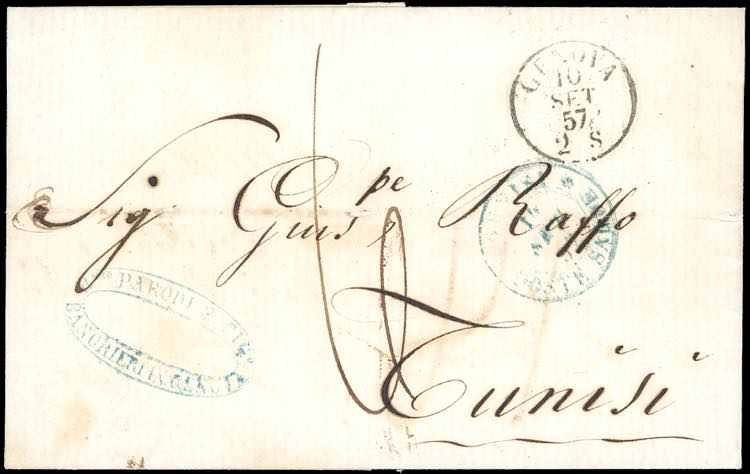 GENOVA
10
SET
57
2 S
Sig Giuspe Raffo
POSTE SARDE
PARODI & CIO
BANCHIERI IN GENOVA
Tunisi